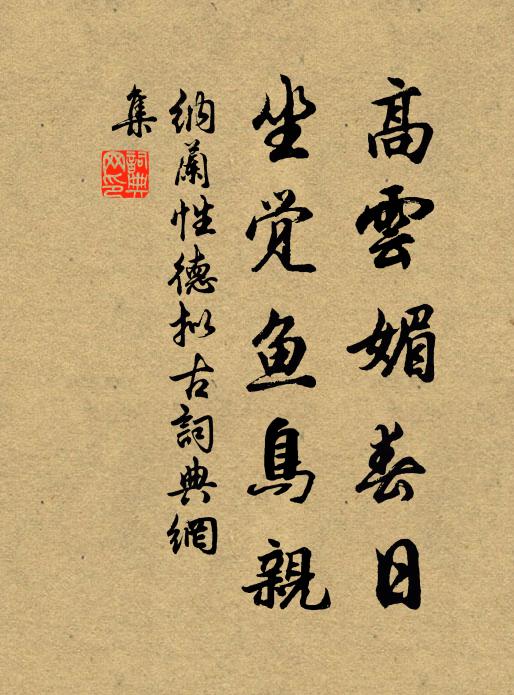 高雲媚春日
坐覺鱼鳥親
納蘭性德拟古詞典網
集
詞典
网印